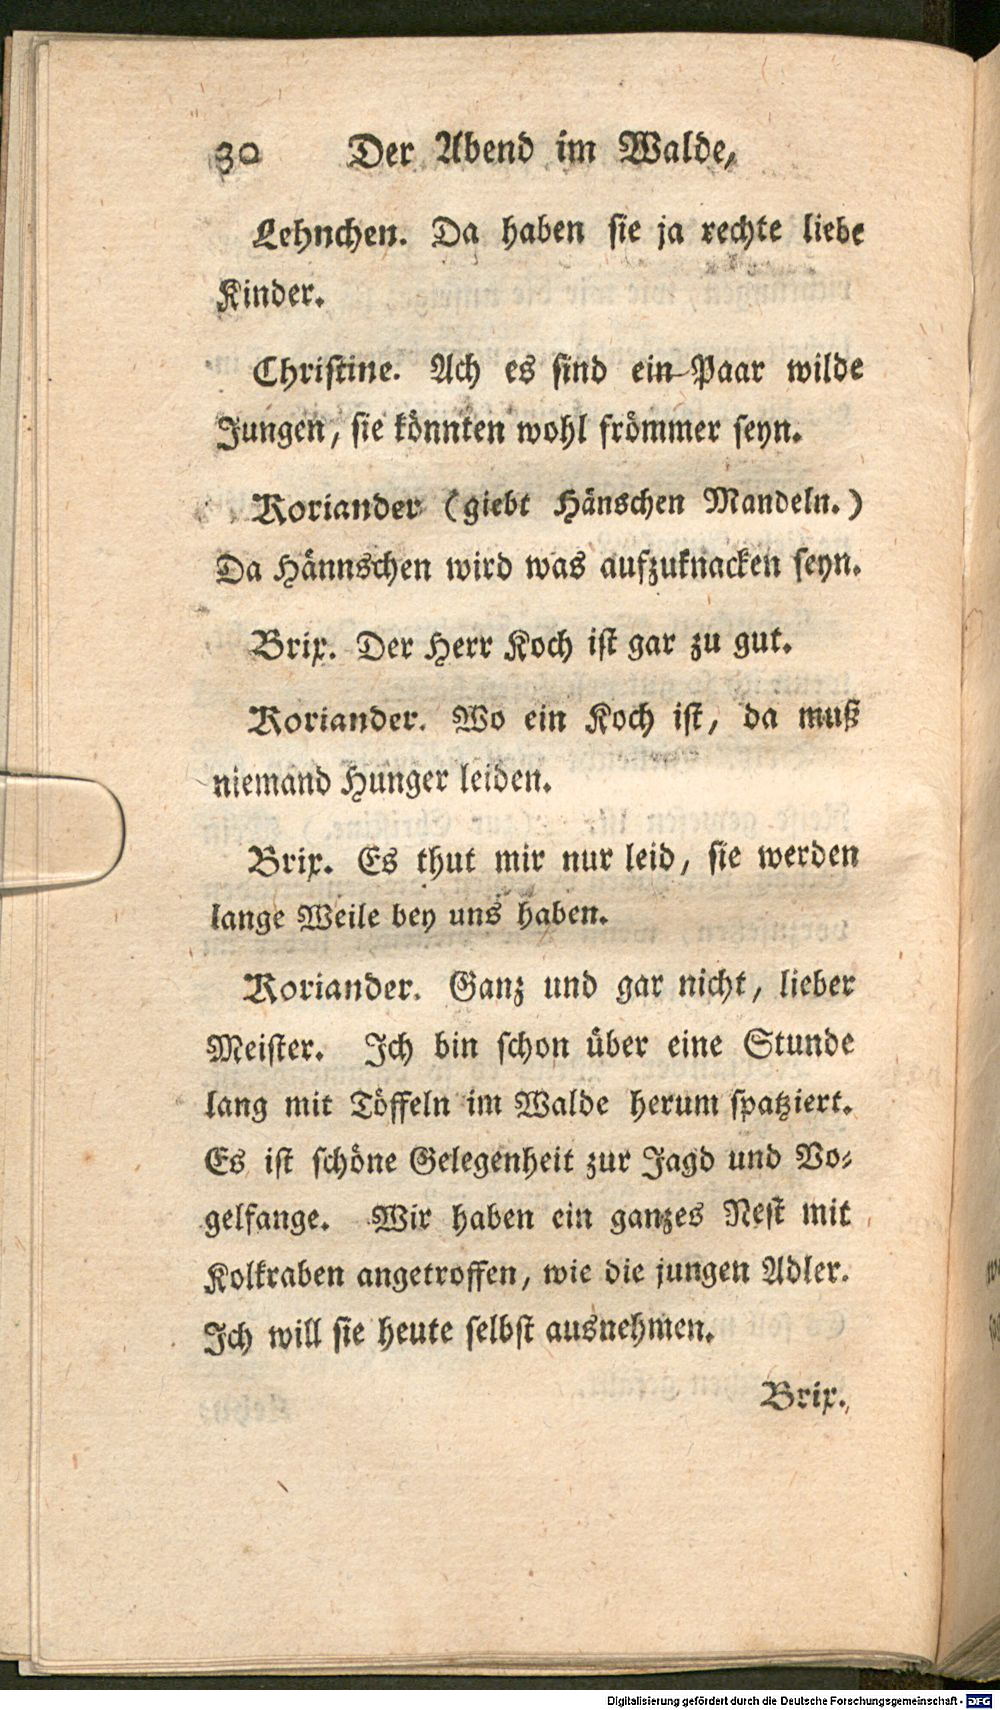 30 Der Abend im Walde,
Lehnchen. Da haben sie ja rechte liebe
Kinder.
Christine. Ach es sind ein Paar wilde
Jungen, sie könnten wohl frömmer seyn.
Koriander (giebt Hänschen Mandeln.)
Da Hännschen wird was aufzuknacken seyn.
Brix. Der Herr Koch ist gar zu gut.
Koriander. Wo ein Koch ist, da muß
niemand Hunger leiden.
Brix. Es thut mir nur leid, sie werden
lange Weile bey uns haben.
Koriander. Ganz und gar nicht, lieber
Meister. Ich bin schon über eine Stunde
lang mit Töffeln im Walde herum spatziert.
Es ist schöne Gelegenheit zur Jagd und Vo-
gelfange. Wir haben ein ganzes Nest mit
Kolkraben angetroffen, wie die jungen Adler.
Ich will sie heute selbst ausnehmen.
Brix.
Digitalisierung gefördert durch die Deutsche Forschungsgemeinschaft - DFG